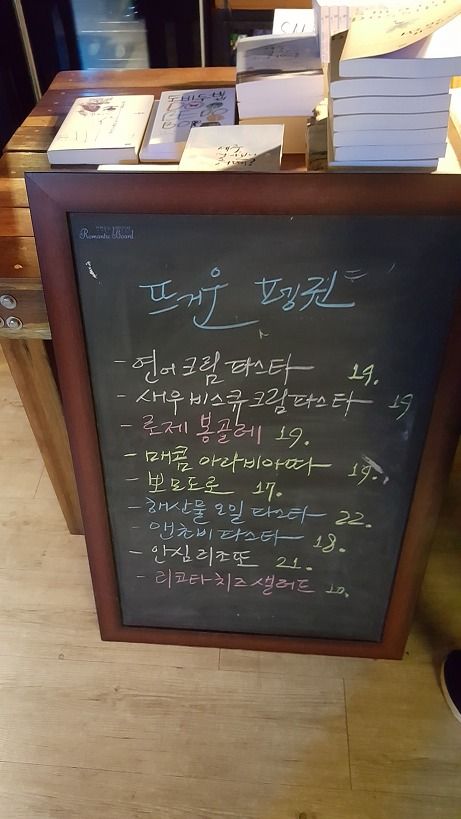 Romantic Board
뜨거운 펭귄
- 연어크림파스타 19.
- 새우비스큐크림파스타 19
- 로제 봉골레 19.
- 매콤 아라비아따 19.
- 뽀모도로 17.
- 해산물오일파스타 22.
- 앤초비파스타 18.
- 안심리조또 21.
- 리코타치즈샐러드 10.